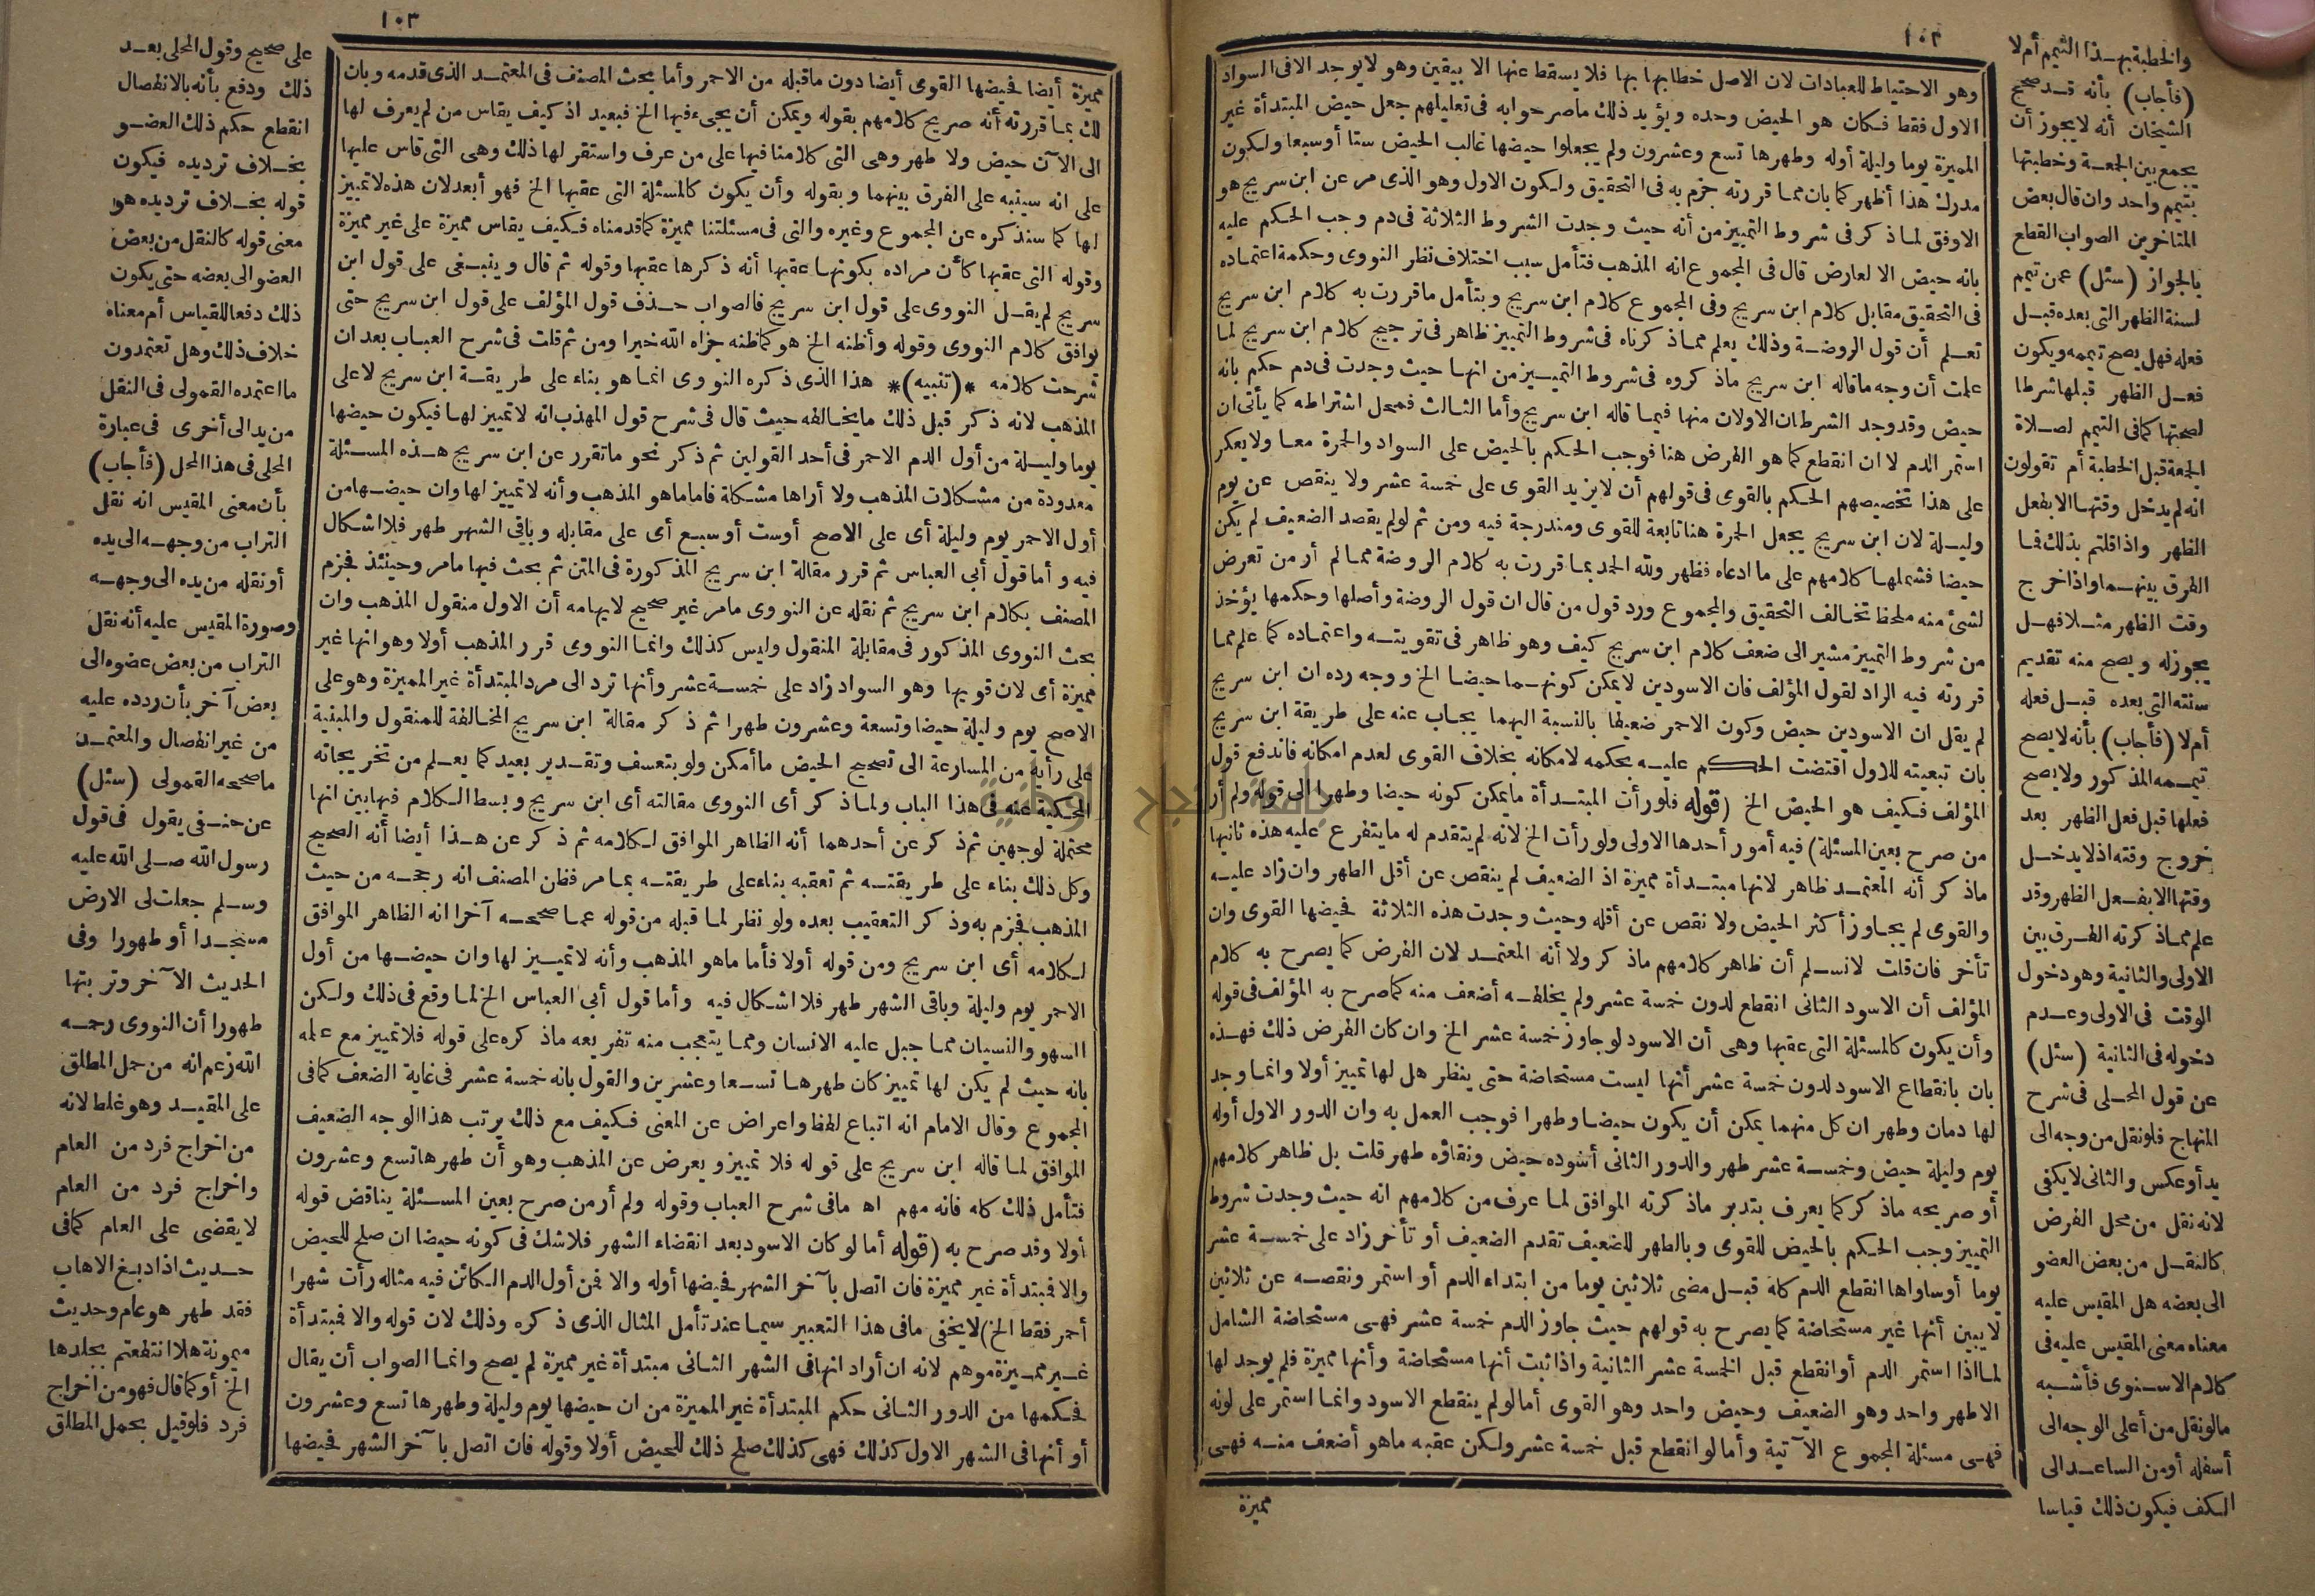 ١٠٢
وهو الاحتياط للعبادات لان الاصل خطابها بها فلا يسقط عنها الا بيقين وهو لا يوجد الا فى السواد
الاول فقط فكان هو الحيض وحده ويؤيد ذلك ما صرحوا به فى تعليلهم جعل حيض المبتدأة غير
المميزة يوما وليلة أوله وطهرها تسع وعشرون ولم يجعلوا حيضها غالب الحيض ستا أو سبعا ولكون
مدرك هذا أظهر كما بان مما قررته جزم به فى التحقيق ولكون الاول وهو الذى مر عن ابن سريج هو
الاوفق لما ذكر فى شروط التمييز من أنه حيث وجدت الشروط الثلاثة فى دم وجب الحكم عليه
بانه حيض الا لعارض قال فى المجموع انه المذهب فتأمل سبب اختلاف نظر النووى وحكمة اعتماده
فى التحقيق مقابل كلام ابن سريج وفى المجموع كلام ابن سريج وبتأمل ما قررت به كلام ابن سريج
تعلم أن قول الروضة وذلك يعلم مما ذكرناه فى شروط التمييز ظاهر فى ترجيح كلام ابن سريج لما
علمت أن وجه ما قاله ابن سريج ما ذكروه فى شروط التمييز من انها حيث وجدت فى دم حكم بانه
حيض وقد وجد الشرطان الاولان منها فيما قاله ابن سريج وأما الثالث فمحل اشتراطه كما يأتى ان
استمر الدم لا ان انقطع كما هو الفرض هنا فوجب الحكم بالحيض على السواد والحمرة معا ولا يعكر
على هذا تخصيصهم الحكم بالقوى فى قولهم أن لا يزيد القوى على خمسة عشر ولا ينقص عن يوم
وليلة لان ابن سريج يجعل الحمرة هنا تابعة للقوى ومندرجة فيه ومن ثم لو لم يقصد الضعيف لم يكن
حيضا فشملها كلامهم على ما ادعاه فظهر ولله الحمد بما قررت به كلام الروضة مما لم أر من تعرض
لشئ منه ملحظ تخالف التحقيق والمجموع ورد قول من قال ان قول الروضة وأصلها وحكمها يؤخذ
من شروط التمييز مشير الى ضعف كلام ابن سريج كيف وهو ظاهر فى تقويته واعتماده كما علم مما
قررته فيه الراد لقول المؤلف فان الاسودين لا يمكن كونهما حيضا الخ ووجه رده ان ابن سريج
لم يقل ان الاسودين حيض وكون الاحمر ضعيفا بالنسبة اليهما يجاب عنه على طريقة ابن سريج
بان تبعيته للاول اقتضت الحكم عليه بحكمه لامكانه بخلاف القوى لعدم امكانه فاندفع قول
المؤلف فكيف هو الحيض الخ (قوله فلو رأت المبتدأة ما يمكن كونه حيضا وطهرا الى قوله ولم أر
من صرح بعين المسئلة) فيه أمور أحدها الاولى ولو رأت الخ لانه لم يتقدم له ما يتفرع عليه هذه ثانيها
ما ذكر أنه المعتمد ظاهر لانها مبتدأة مميزة اذ الضعيف لم ينقص عن أقل الطهر وان زاد عليه
والقوى لم يجاوز أكثر الحيض ولا نقص عن أقله وحيث وجدت هذه الثلاثة فحيضها القوى وان
تأخر فان قلت لا نسلم أن ظاهر كلامهم ما ذكر ولا أنه المعتمد لان الفرض كما يصرح به كلام
المؤلف أن الاسود الثانى انقطع لدون خمسة عشر ولم يخلطه أضعف منه كما صرح به المؤلف فى قوله
وأن يكون كالمسئلة التى عقبها وهى أن الاسود لو جاوز خمسة عشر الخ وان كان الفرض ذلك فهذه
بان بانقطاع الاسود لدون خمسة عشر أنها ليست مستحاضة حتى ينظر هل لها تمييز أولا وانما وجد
لها دمان وطهر ان كل منهما يمكن أن يكون حيضا وطهرا فوجب العمل به وان الدور الاول أوله
يوم وليلة حيض وخمسة عشر طهر والدور الثانى أسوده حيض ونقاؤه طهر قلت بل ظاهر كلامهم
أو صريحه ما ذكر كما يعرف بتدبر ما ذكرته الموافق لما عرف من كلامهم انه حيث وجدت شروط
التمييز وجب الحكم بالحيض للقوى وبالطهر للضعيف تقدم الضعيف أو تأخر زاد على خمسة عشر
يوما أو ساواها انقطع الدم كله قبل مضى ثلاثين يوما من ابتداء الدم أو استمر ونقصه عن ثلاثين
لا يبين أنها غير مستحاضة كما يصرح به قولهم حيث جاوز الدم خمسة عشر فهى مستحاضة الشامل
لما اذا استمر الدم أو انقطع قبل الخمسة عشر الثانية واذا ثبت أنها مستحاضة وأنها مميزة فلم يوجد لها
الا طهر واحد وهو الضعيف وحيض واحد وهو القوى أما لو لم ينقطع الاسود وانما استمر على لونه
فهى مسئلة المجموع الآتية وأما لو انقطع قبل خمسة عشر ولكن عقبه ما هو أضعف منه فهى
مميزة
والخطبة بهذا التيمم أم لا
(فأجاب) بأنه قد صحح
الشيخان أنه لا يجوز أن
يجمع بين الجمعة وخطبتها
بتيمم واحد وان قال بعض
المتأخرين الصواب القطع
بالجواز (سئل) عمن تيمم
لسنة الظهر التى بعده قبل
فعله فهل يصح تيممه ويكون
فعل الظهر قبلها شرطا
لصحتها كما فى التيمم لصلاة
الجمعة قبل الخطبة أم تقولون
انه لم يدخل وقتها الا بفعل
الظهر واذا قلتم بذلك فما
الفرق بينهما واذا خرج
وقت الظهر مثلا فهل
يجوز له ويصح منه تقديم
سنته التى بعده قبل فعله
أم لا (فأجاب) بأنه لا يصح
تيممه المذكور ولا يصح
فعلها قبل فعل الظهر بعد
خروج وقته اذ لا يدخل
وقتها الا بفعل الظهر وقد
علم مما ذكرته الفرق بين
الاولى والثانية وهو دخول
الوقت فى الاولى وعدم
دخوله فى الثانية (سئل)
عن قول المحلى فى شرح
المنهاج فلو نقل من وجه الى
يد أو عكس والثانى لا يكفى
لانه نقل من محل الفرض
كالنقل من بعض العضو
الى بعضه هل المقيس عليه
معناه معنى المقيس عليه فى
كلام الاسنوى فأشبه
ما لو نقل من أعلى الوجه الى
أسفله أو من الساعد الى
الكف فيكون ذلك قياسا
١٠٣
مميزة أيضا فحيضها القوى أيضا دون ما قبله من الاحمر وأما بحث المصنف فى المعتمد الذى قدمه وبان
لك بما قررته أنه صريح كلامهم بقوله ويمكن أن يجىء فيها الخ فبعيد اذ كيف يقاس من لم يعرف لها
الى الآن حيض ولا طهر وهى التى كلامنا فيها على من عرف واستقر لها ذلك وهى التى قاس عليها
على انه سينبه على الفرق بينهما وبقوله وأن يكون كالمسئلة التى عقبها الخ فهو أبعد لان هذه لا تمييز
لها كما سنذكره عن المجموع وغيره والتى فى مسئلتنا مميزة كما قدمناه فكيف يقاس مميزة على غير مميزة
وقوله التى عقبها كأن مراده بكونها عقبها أنه ذكرها عقبها وقوله ثم قال وينبغى على قول ابن
سريج لم يقل النووى على قول ابن سريج فالصواب حذف قول المؤلف على قول ابن سريج حتى
يوافق كلام النووى وقوله وأظنه الخ هو كما ظنه جزاه الله خيرا ومن ثم قلت فى شرح العباب بعد ان
شرحت كلامه *(تنبيه)* هذا الذى ذكره النووى انما هو بناء على طريقة ابن سريج لا على
المذهب لانه ذكر قبل ذلك ما يخالفه حيث قال فى شرح قول المهذب انه لا تمييز لها فيكون حيضها
يوما وليلة من أول الدم الاحمر فى أحد القولين ثم ذكر نحو ما تقرر عن ابن سريج هذه المسئلة
معدودة من مشكلات المذهب ولا أراها مشكلة فاما ما هو المذهب وأنه لا تمييز لها وان حيضها من
أول الاحمر يوم وليلة أى على الاصح أو ست أو سبع أى على مقابله وباقى الشهر طهر فلا اشكال
فيه وأما قول أبى العباس ثم قرر مقالة ابن سريج المذكورة فى المتن ثم بحث فيها ما مر وحينئذ فجزم
المصنف بكلام ابن سريج ثم نقله عن النووى ما مر غير صحيح لايهامه أن الاول منقول المذهب وان
بحث النووى المذكور فى مقابلة المنقول وليس كذلك وانما النووى قرر المذهب أولا وهو انها غير
مميزة أى لان قويها وهو السواد زاد على خمسة عشر وأنها ترد الى مرد المبتدأة غير المميزة وهو على
الاصح يوم وليلة حيضا وتسعة وعشرون طهرا ثم ذكر مقالة ابن سريج المخالفة للمنقول والمبنية
على رأيه من المسارعة الى تصحيح الحيض ما أمكن ولو بتعسف وتقدير بعيد كما يعلم من تخريجاته
المحكية عنه فى هذا الباب ولما ذكر أى النووى مقالته أى ابن سريج وبسط الكلام فيها بين انها
محتملة لوجهين ثم ذكر عن أحدهما أنه الظاهر الموافق لكلامه ثم ذكر عن هذا أيضا أنه الصحيح
وكل ذلك بناء على طريقته ثم تعقبه بناء على طريقته بما مر فظن المصنف انه رجحه من حيث
المذهب فجزم به وذكر التعقيب بعده ولو نظر لما قبله من قوله عما صححه آخرا انه الظاهر الموافق
لكلامه أى ابن سريج ومن قوله أولا فأما ما هو المذهب وأنه لا تمييز لها وان حيضها من أول
الاحمر يوم وليلة وباقى الشهر طهر فلا اشكال فيه وأما قول أبى العباس الخ لما وقع فى ذلك ولكن
السهو والنسيان مما جبل عليه الانسان ومما يتعجب منه تفريعه ما ذكره على قوله فلا تمييز مع علمه
بانه حيث لم يكن لها تمييز كان طهرها تسعا وعشرين والقول بانه خمسة عشر فى غاية الضعف كما فى
المجموع وقال الامام انه اتباع لفظ واعراض عن المعنى فكيف مع ذلك يرتب هذا الوجه الضعيف
الموافق لما قاله ابن سريج على قوله فلا تمييز ويعرض عن المذهب وهو أن طهرها تسع وعشرون
فتأمل ذلك كله فانه مهم اه ما فى شرح العباب وقوله ولم أر من صرح بعين المسئلة يناقض قوله
أولا وقد صرح به (قوله أما لو كان الاسود بعد انقضاء الشهر فلا شك فى كونه حيضا ان صلح للحيض
والا فمبتدأة غير مميزة فان اتصل بآخر الشهر فحيضها أوله والا فمن أول الدم الكائن فيه مثاله رأت شهرا
أحمر فقط الخ) لا يخفى ما فى هذا التعبير سيما عند تأمل المثال الذى ذكره وذلك لان قوله والا فمبتدأة
غير مميزة موهم لانه ان أراد انها فى الشهر الثانى مبتدأة غير مميزة لم يصح وانما الصواب أن يقال
فحكمها من الدور الثانى حكم المبتدأة غير المميزة من ان حيضها يوم وليلة وطهرها تسع وعشرون
أو أنها فى الشهر الاول كذلك فهى كذلك صلح ذلك للحيض أولا وقوله فان اتصل بآخر الشهر فحيضها
على صحيح وقول المحلى بعد
ذلك ودفع بأنه بالانفصال
انقطع حكم ذلك العضو
بخلاف ترديده فيكون
قوله بخلاف ترديده هو
معنى قوله كالنقل من بعض
العضو الى بعضه حتى يكون
ذلك دفعا للقياس أم معناه
خلاف ذلك وهل تعتمدون
ما اعتمده القمولى فى النقل
من يد الى أخرى فى عبارة
المحلى فى هذا المحل (فأجاب)
بأن معنى المقيس انه نقل
التراب من وجهه الى يده
أو نقله من يده الى وجهه
وصورة المقيس عليه أنه نقل
التراب من بعض عضوه الى
بعض آخر بأن ردده عليه
من غير انفصال والمعتمد
ما صححه القمولى (سئل)
عن حنفى يقول فى قول
رسول الله صلى الله عليه
وسلم جعلت لى الارض
مسجدا أو طهورا وفى
الحديث الآخر وتربتها
طهورا أن النووى رحمه
الله زعم انه من حمل المطلق
على المقيد وهو غلط لانه
من اخراج فرد من العام
واخراج فرد من العام
لا يقضى على العام كما فى
حديث اذا دبغ الاهاب
فقد طهر هو عام وحديث
ميمونة هلا انتفعتم بجلدها
الخ أو كما قال فهو من اخراج
فرد فلو قيل بحمل المطلق